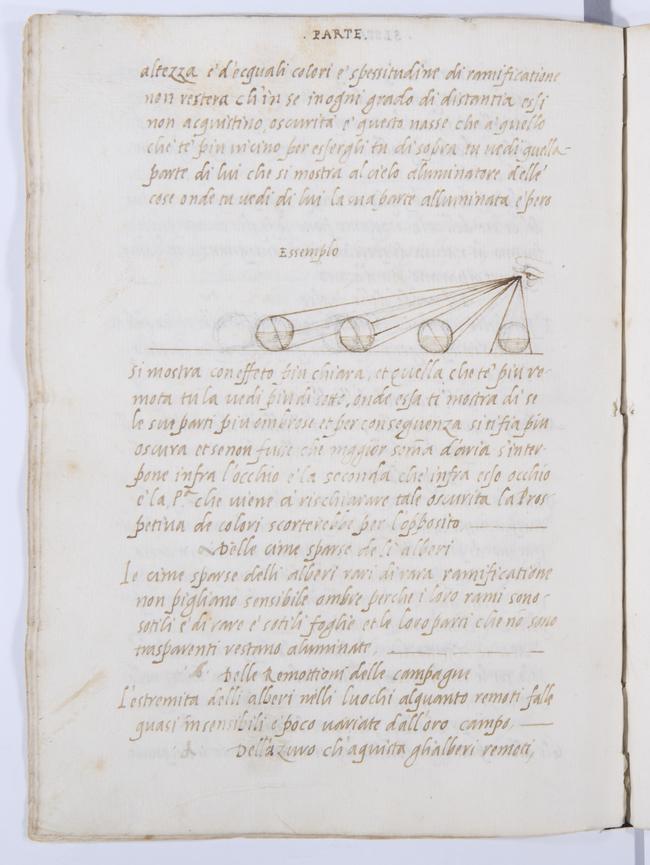 . PARTE.
altezza e d'ecquali colori e spessitudine di ramificatione
non restera ch in se in ogni grado di distantia essi
non acquistino oscurita e questo nasse che a quello
che te piu vicino per esserghi tu di sopra tu vedi quella
parte di lui che si mostra al cielo aluminatore delle
cose onde tu vedi di lui la sua parte alluminata e pero
Essemplo
si mostra con effeto piu chiara, et quella che te piu re
mota tu la vedi piu di sotto, onde essa ti mostra di se
le sue parti piu ombrose et per conseguenza si ti fia piu
oscura et se non fusse che maggior soma d'aria s'inter
pone infra l'occhio e la seconda che infra esso occhio
e la Pª che viene a rischiarare tale oscurita la Pros
petiva de colori scorterebbe per l'opposito
Delle cime sparse de li alberi
Le cime sparse delli alberi rari di rara ramificatione
non pigliano sensibile ombre perche i loro rami sono
sotili e di rare e sotili foglie et le loro parti che nō sono
trasparenti restano aluminate
Delle Remottioni delle campagne
L'estremita delli alberi nilli luochi alquanto remoti falle
quasi insensibili e poco variate dall'oro campo,
Dell azuro ch aquista gli alberi remoti,